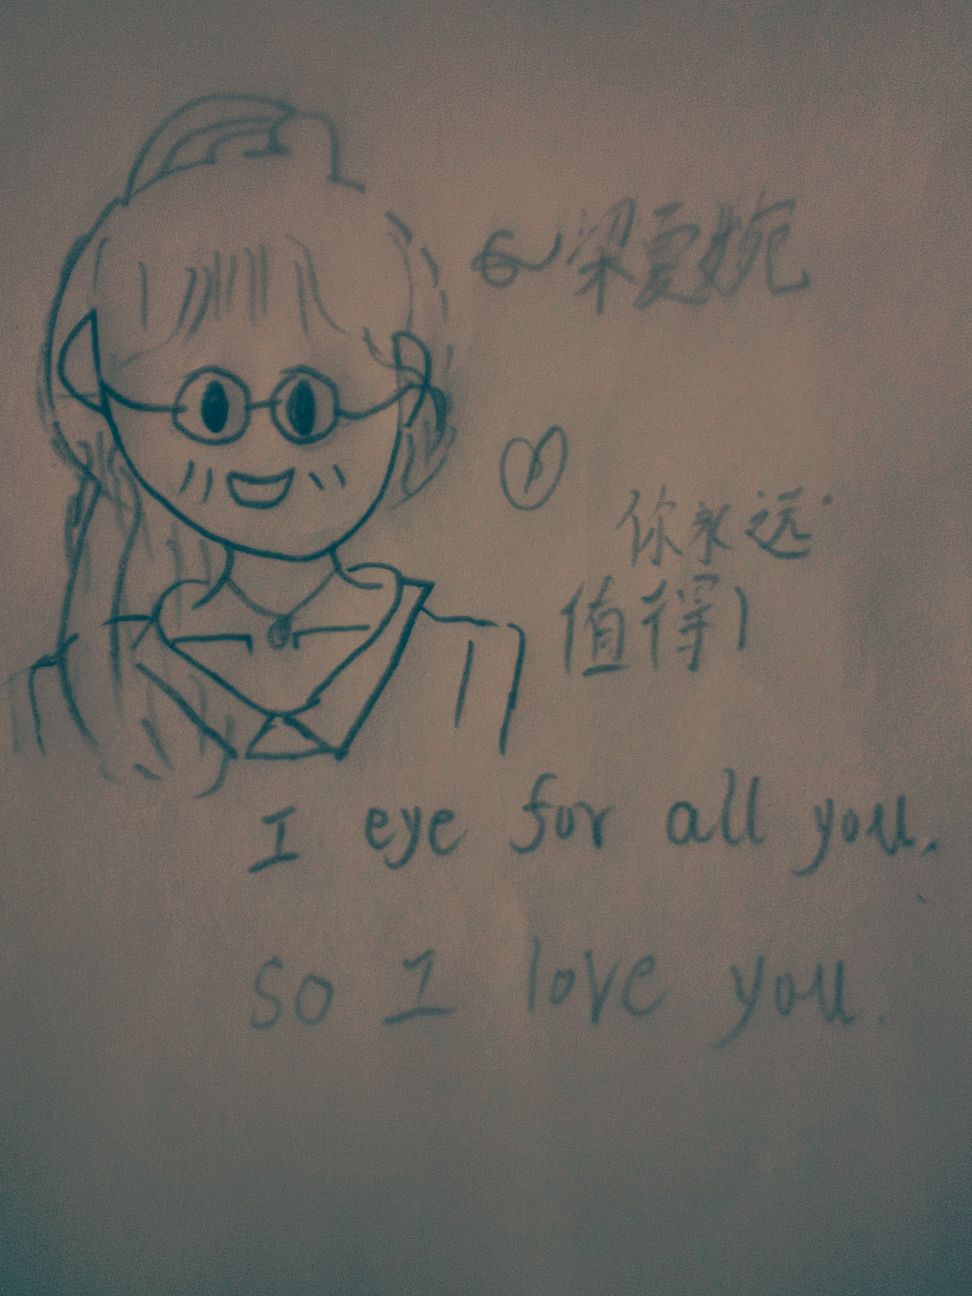 梁夏婉
你永远
值得!
I eye for all you.
so I love you.